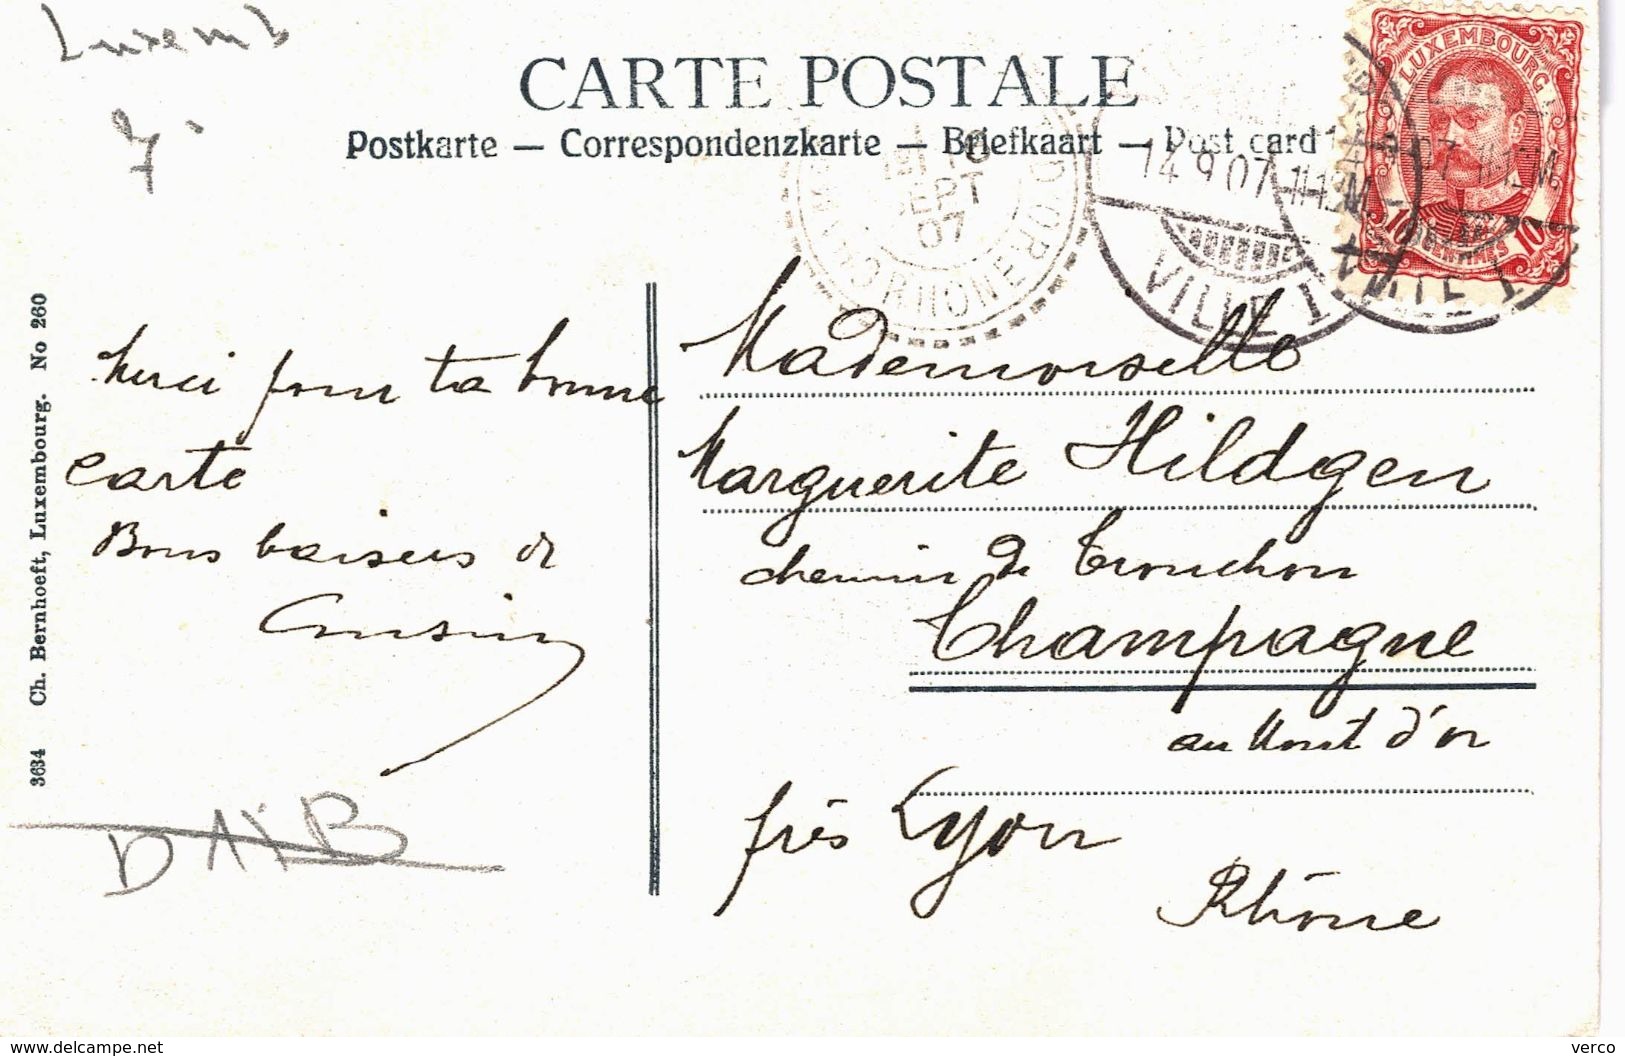 Luxemb
7.
CARTE POSTALE
Postkarte — Correspondenzkarte — Briefkaart — Post card
LUXEMBOURG
10 10
CENTIMES
14.9.07
VILLE 1
SEPT
07
RHONE
Merci pour ta bonne
carte
Bons baisers de
Mademoiselle
Marguerite Hildgen
chemin de Trouchon
Champagne
au Mont d'or
près Lyon
Rhône
3634 Ch. Bernhoeft, Luxembourg. No 260
delcampe.net
verco